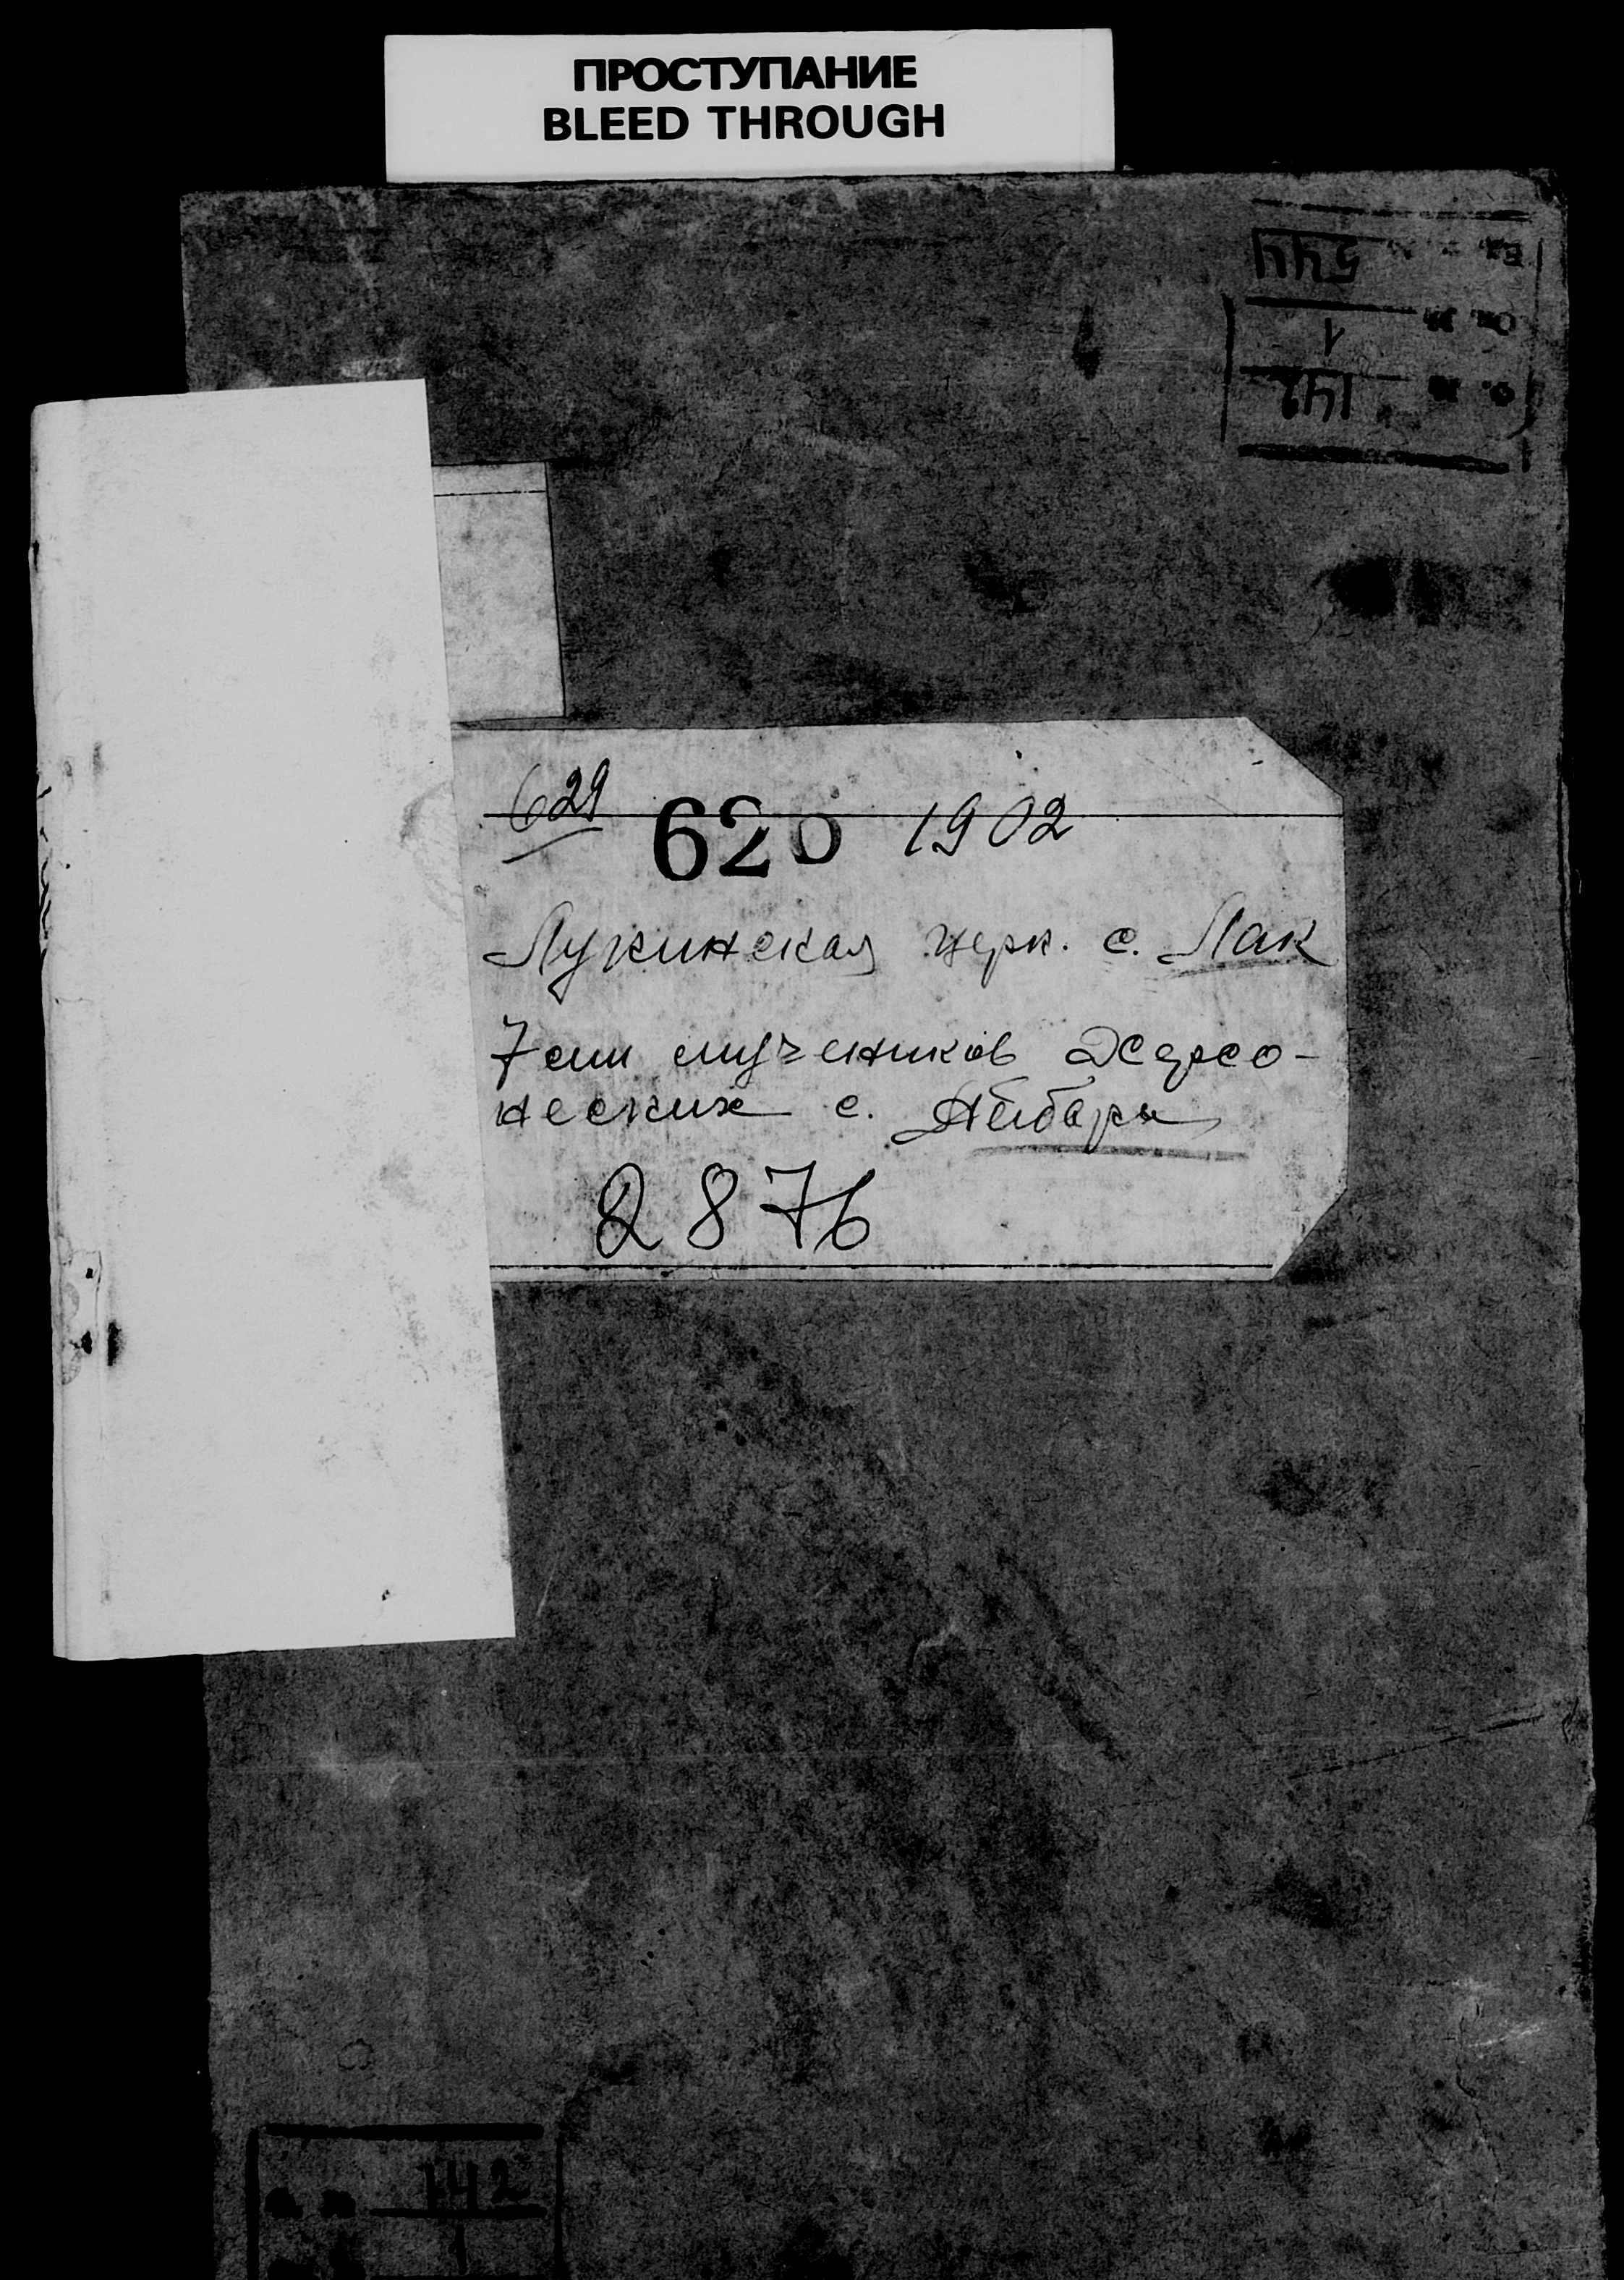 ПРОСТУПАНИЕ
BLEED THROUGH
Ед. 544
Оп. № 1
Ф. № 142
629 620 1902
Лукинская церк. с. Лак
7 ми мучеников Херсо-
неских с. Айбары
2876
142
1